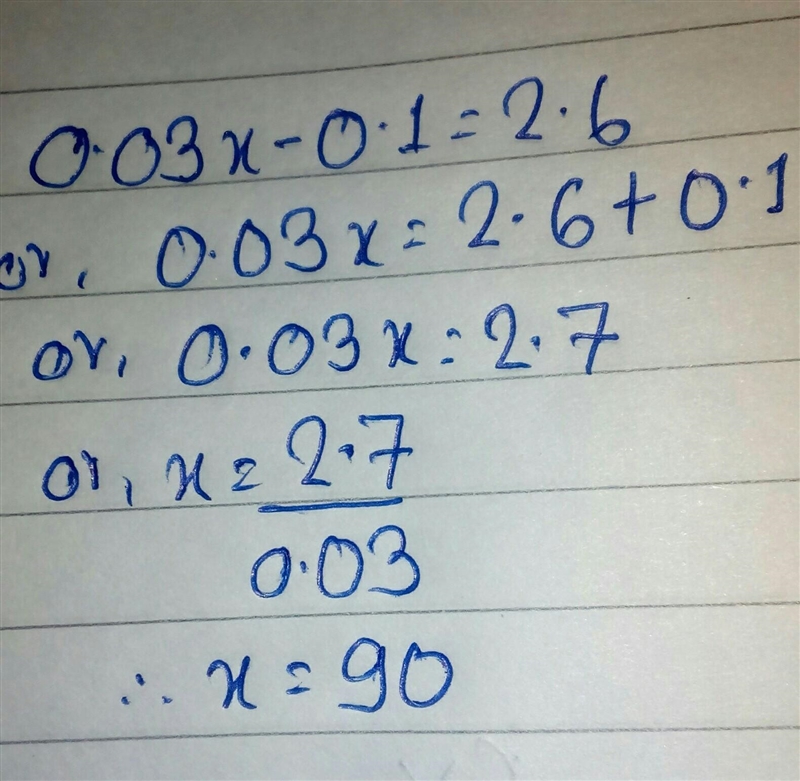 0.03x-0.1=2.6
or, 0.03x=2.6+0.1
or, 0.03x=2.7
or, x=2.7
0.03
∴ x=90